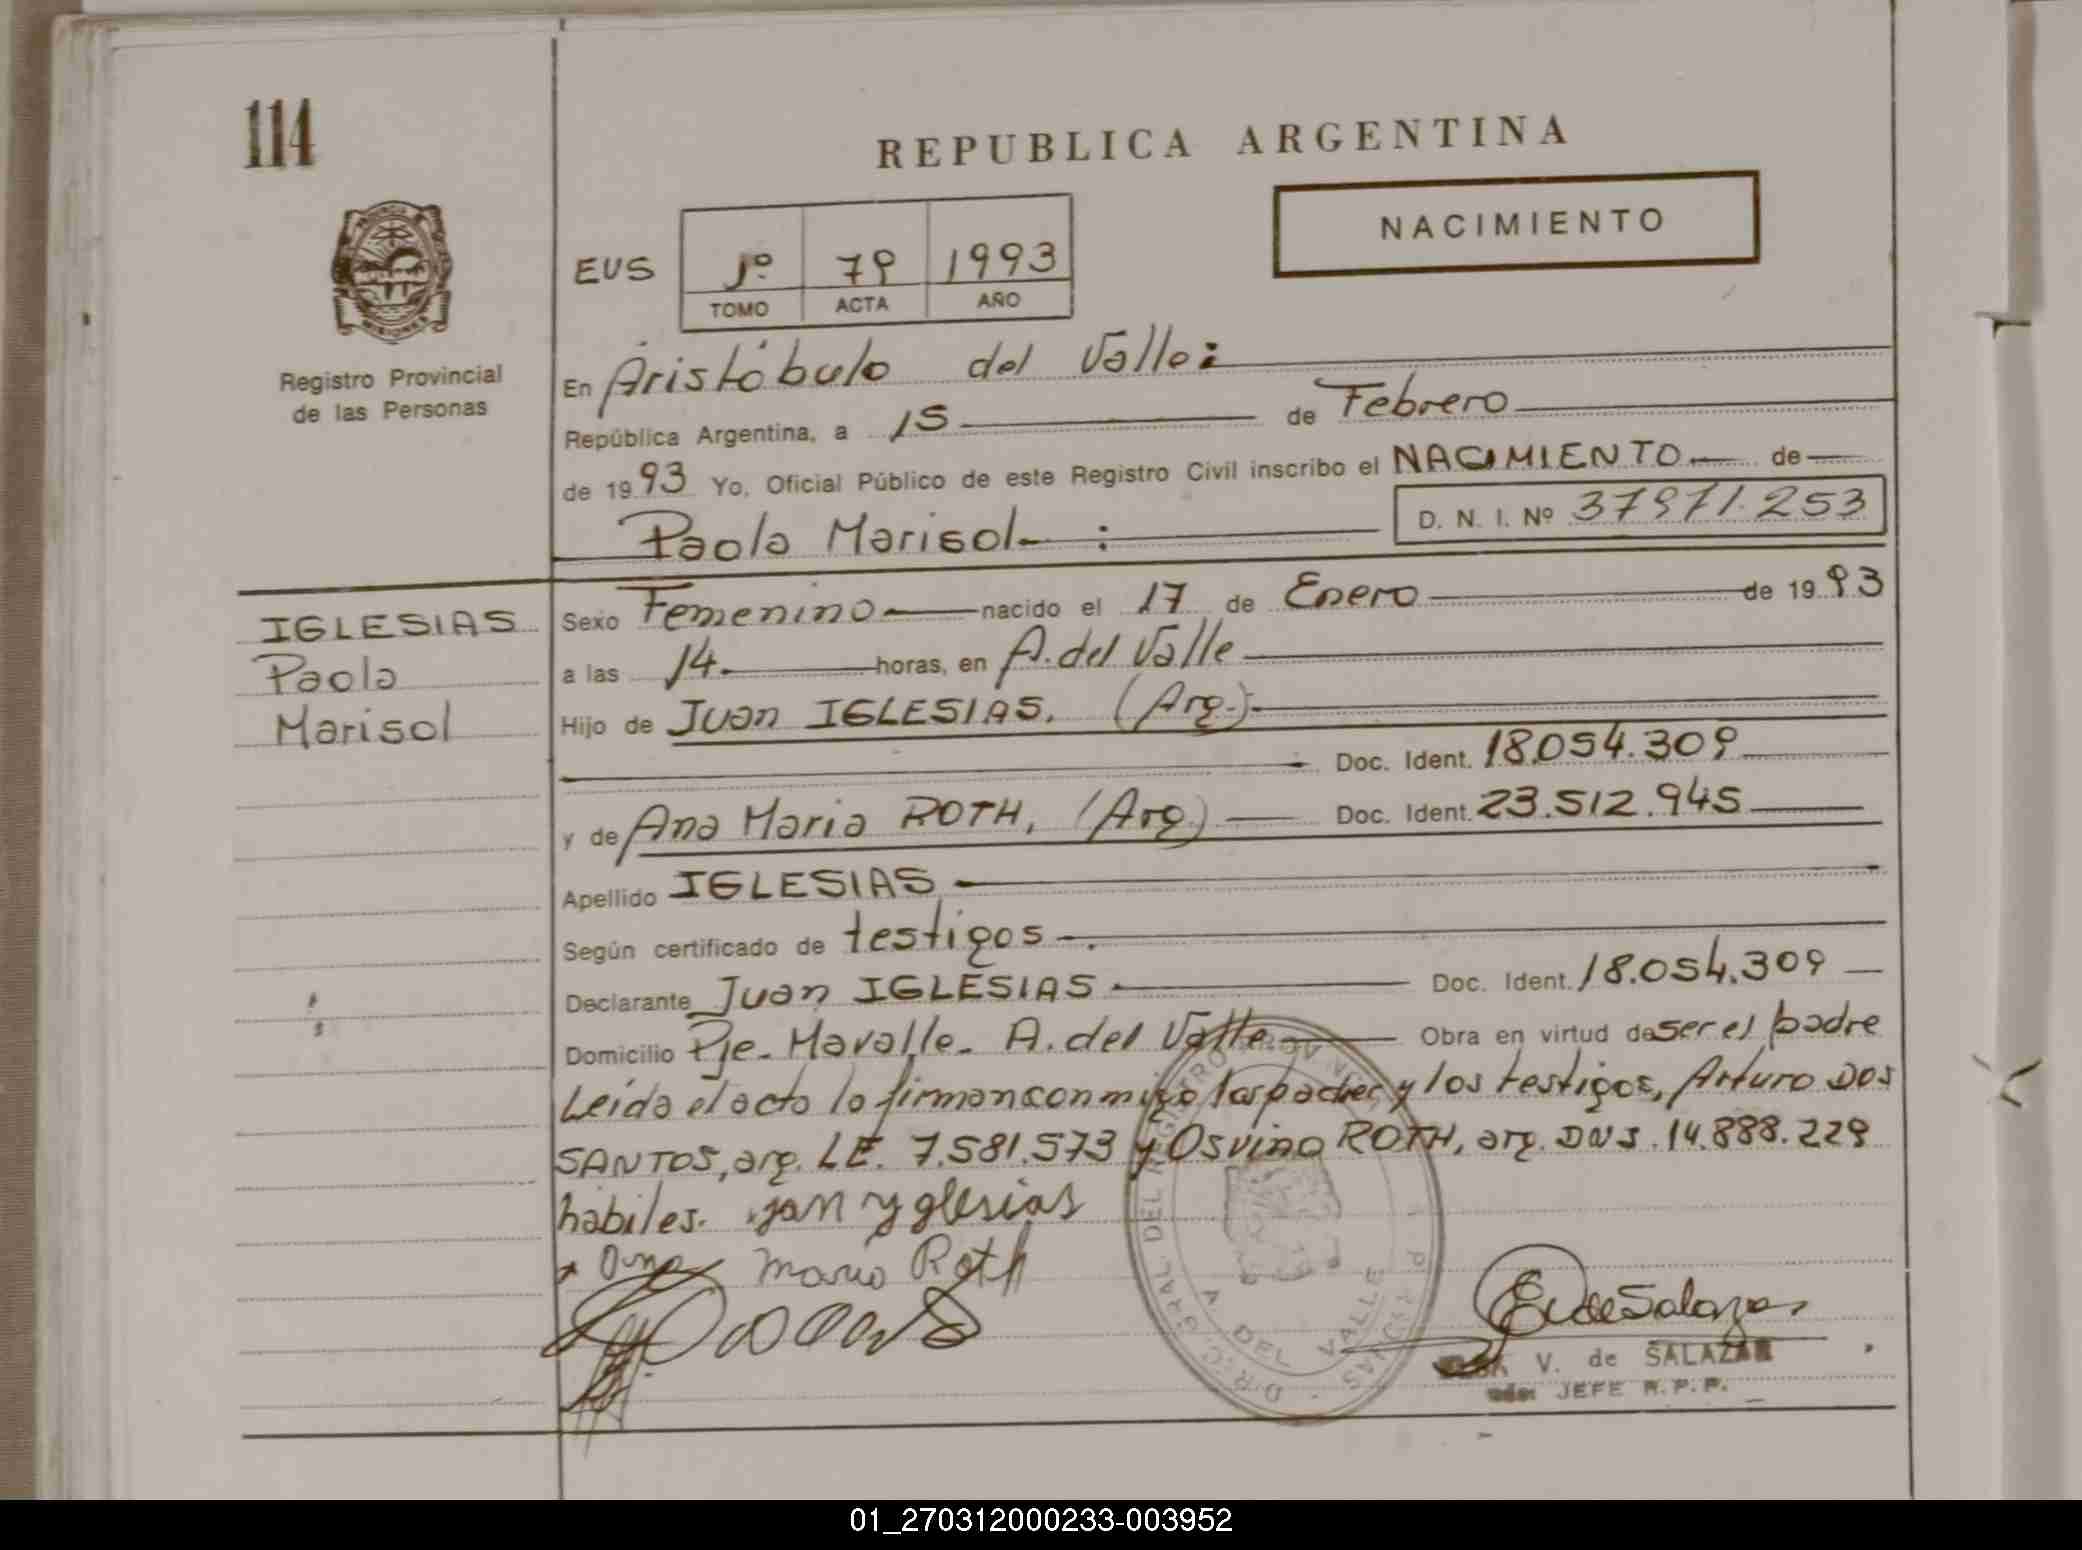 114
REPUBLICA ARGENTINA
NACIMIENTO
PROVINCIA
MISIONES
Registro Provincial
de las Personas
EUS 1º 79 1993
TOMO ACTA AÑO
En Aristóbulo del Valle:
República Argentina, a 15 de Febrero
de 1993 Yo, Oficial Público de este Registro Civil inscribo el NACIMIENTO de
Paola Marisol. : D. N. I. Nº 37.971.253
IGLESIAS
Paola
Marisol
Sexo Femenino nacido el 17 de Enero de 1993
a las 14. horas, en A. del Valle
Hijo de Juan IGLESIAS. (Arg.)
Doc. Ident. 18.054.309
y de Ana Maria ROTH, (Arg.) Doc. Ident. 23.512.945
Apellido IGLESIAS
Según certificado de testigos
Declarante Juan IGLESIAS Doc. Ident. 18.054.309
Domicilio Pje. Mavalle. A. del Valle Obra en virtud de ser el padre
Leída el acta la firman conmigo los padres y los testigos, Arturo DOS
SANTOS, arg. LE. 7.581.573 y Osvino ROTH, arg. DNI. 14.888.229
hábiles. Jan yglesias
Ana Maria Roth
D.R.C. GRAL DEL REGISTRO
A DEL VALLE
E V de Salazar
V. de SALAZAR
JEFE R.P.P.
01_270312000233-003952